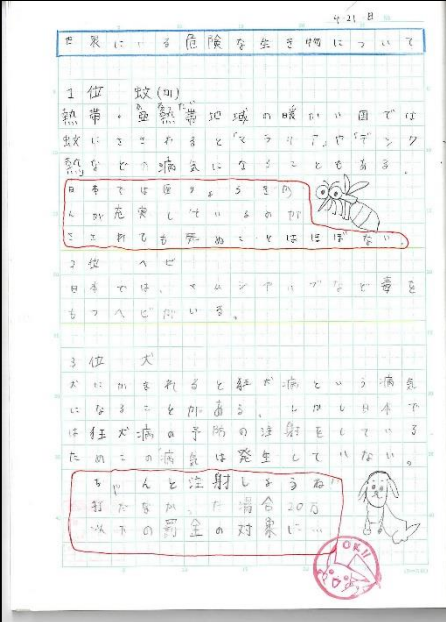 4月21日
世界にいる危険な生き物について
1位 蚊(か)
熱帯・亜熱帯地域の暖かい国では
あ ねったい
蚊にさされると「マラリア」や「デング
熱」などの病気になることもある。
日本では医りょうきか
んが充実しているのが
さされても死ぬことはほぼない。
2位 ヘビ
日本では、マムシやハブなど毒を
もつヘビがいる。
3位 犬
犬にかまれると狂犬病という病気
になることがある。しかし日本で
は狂犬病の予防の注射をしている
ためこの病気は発生していない。
ちゃんと注射しようね
打たなかった場合20万
以下の罰金の対象に…
OK!!